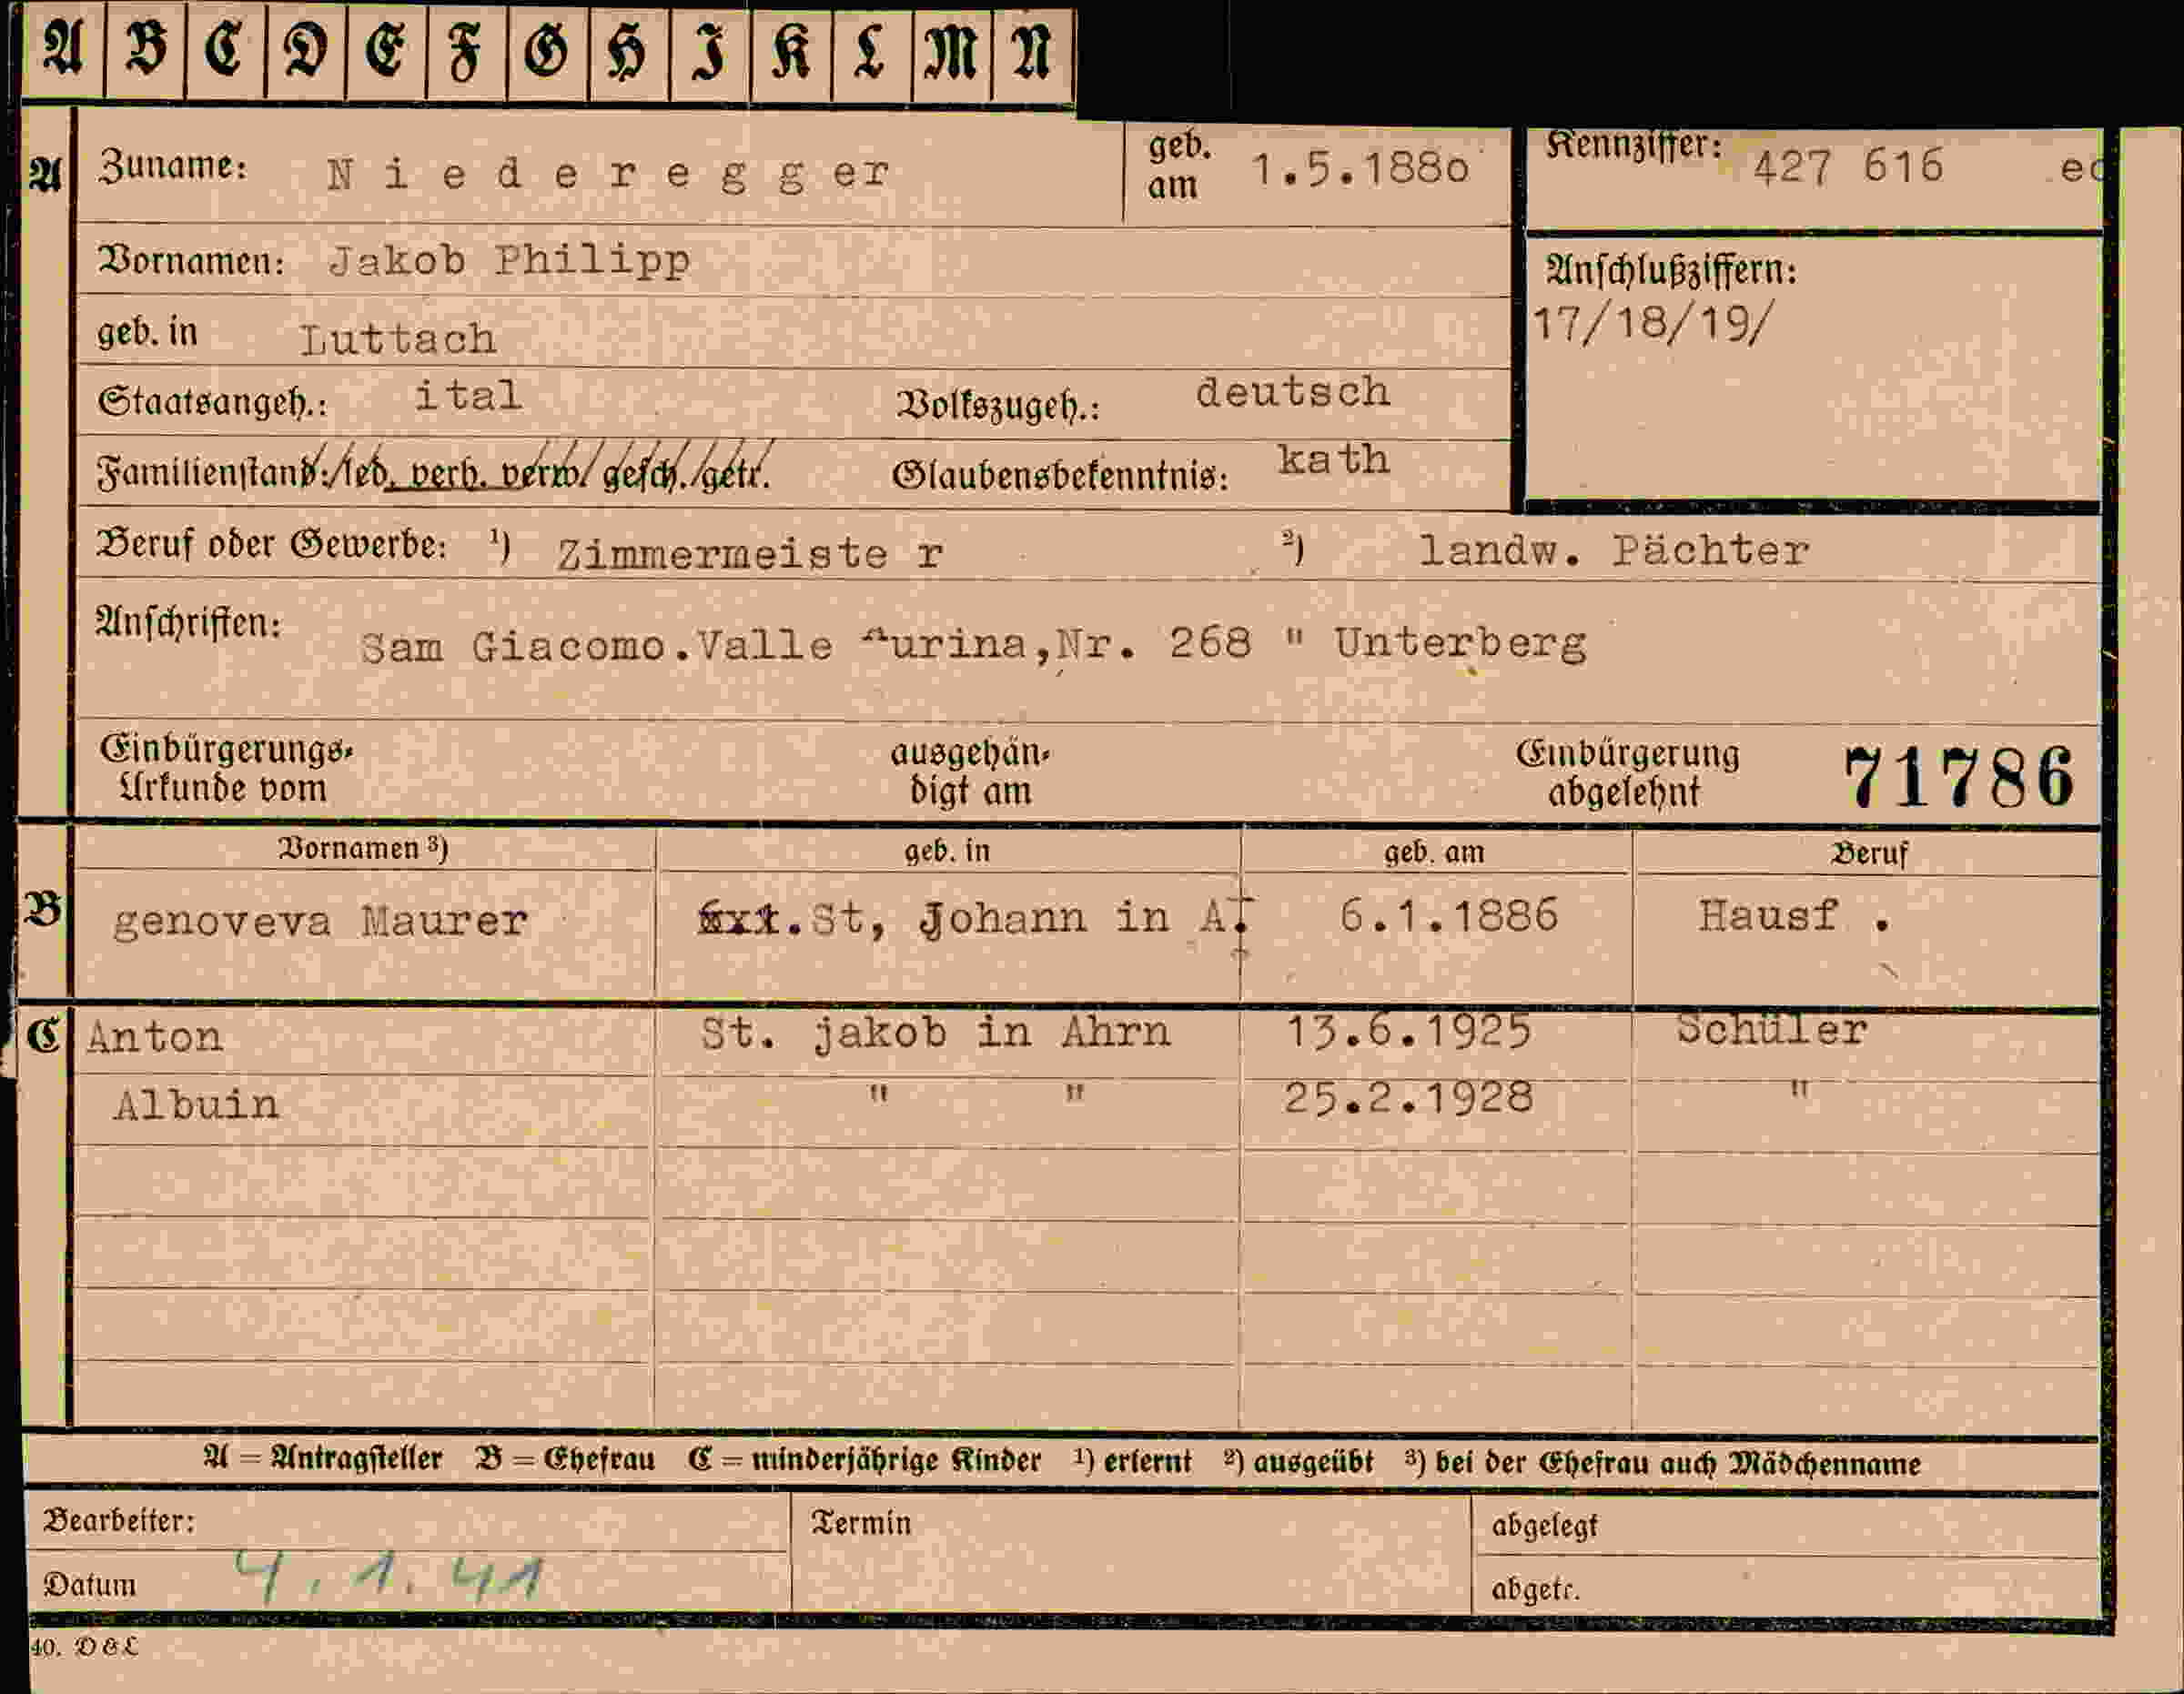 A B C D E F G H I K L M N
A Zuname: Niederegger geb. am 1.5.1880 Kennziffer: 427 616
Vornamen: Jakob Philipp
Anschlußziffern:
17/18/19/
geb. in Luttach
Staatsangeh.: ital Volkszugeh.: deutsch
Familienstand: led. verh. verw. gesch. getr. Glaubensbekenntnis: kath
Beruf oder Gewerbe: ¹) Zimmermeiste r ²) landw. Pächter
Anschriften: Sam Giacomo.Valle Aurina,Nr. 268 " Unterberg
Einbürgerungs-Urkunde vom ausgehändigt am Einbürgerung abgelehnt 71786
Vornamen ³) geb. in geb. am Beruf
B genoveva Maurer St, Johann in A. 6.1.1886 Hausf .
C Anton St. jakob in Ahrn 13.6.1925 Schüler
Albuin " " 25.2.1928 "
A = Antragsteller B = Ehefrau C = minderjährige Kinder ¹) erlernt ²) ausgeübt ³) bei der Ehefrau auch Mädchenname
Bearbeiter: Termin abgelegt
Datum 4.1.41 abgetr.
40. D&L